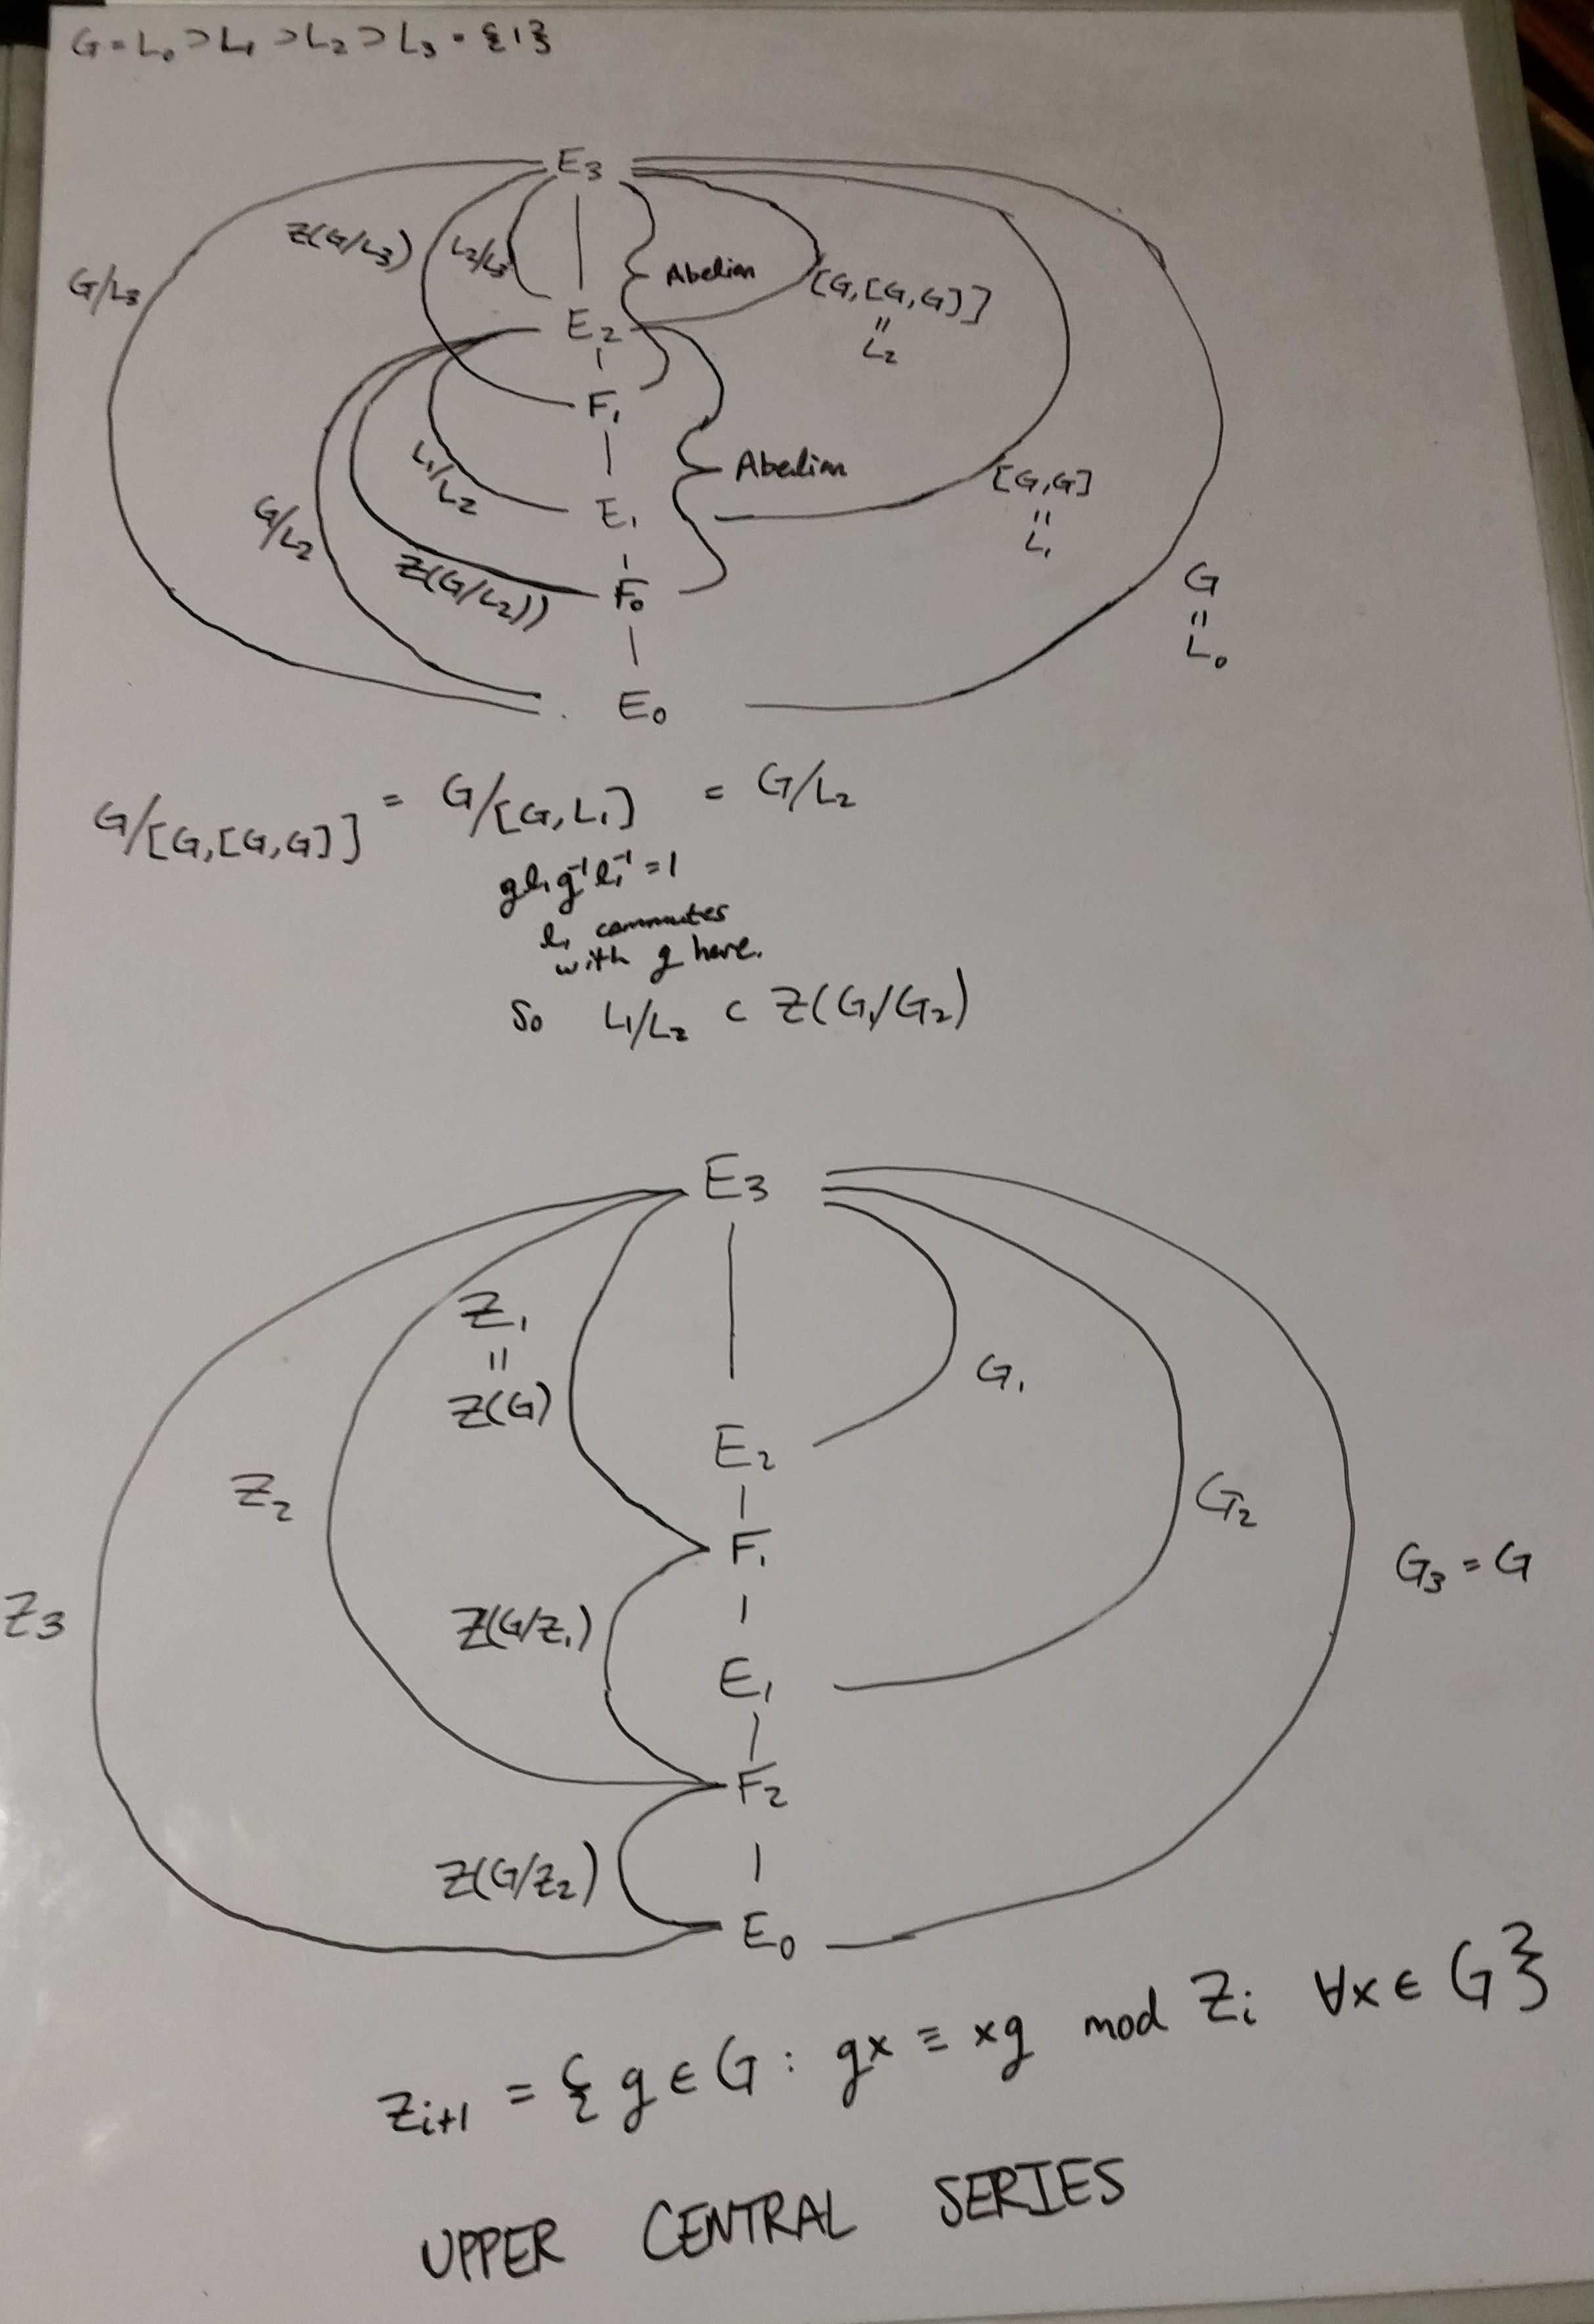 G = L₀ ⊃ L₁ ⊃ L₂ ⊃ L₃ = {1}
E₃
Z(G/L₃)
L₂/L₃
Abelian
G/L₃
[G,[G,G]]
=
L₂
E₂
F₁
L₁/L₂
Abelian
[G,G]
=
L₁
G/L₂
E₁
Z(G/L₂))
F₀
G
=
L₀
E₀
G/[G,[G,G]] = G/[G,L₁] = G/L₂
gl₁g⁻¹l₁⁻¹ = 1
l₁ commutes
with g here.
So L₁/L₂ ⊂ Z(G/G₂)
E₃
Z₁
=
Z(G)
G₁
E₂
Z₂
G₂
F₁
G₃ = G
Z₃
Z(G/Z₁)
E₁
F₂
Z(G/Z₂)
E₀
Zᵢ₊₁ = { g ∈ G : gx ≡ xg mod Zᵢ ∀x ∈ G }
UPPER CENTRAL SERIES